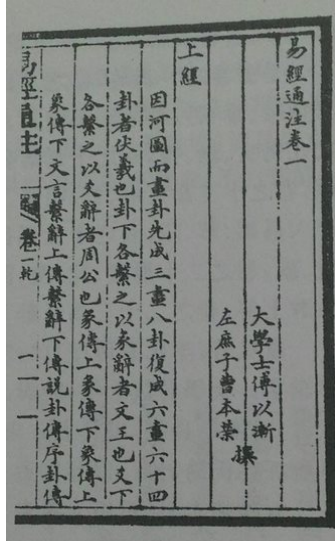 易經通注卷一
大學士傅以漸
左庶子曹本榮
撰
上經
因河圖而畫卦先成三畫八卦復成六畫六十四
卦者伏羲也卦下各繫之以彖辭者文王也爻下
各繫之以爻辭者周公也彖傳上彖傳下象傳上
象傳下文言繫辭上傳繫辭下傳說卦傳序卦傳
易經通注 卷一 乾 一